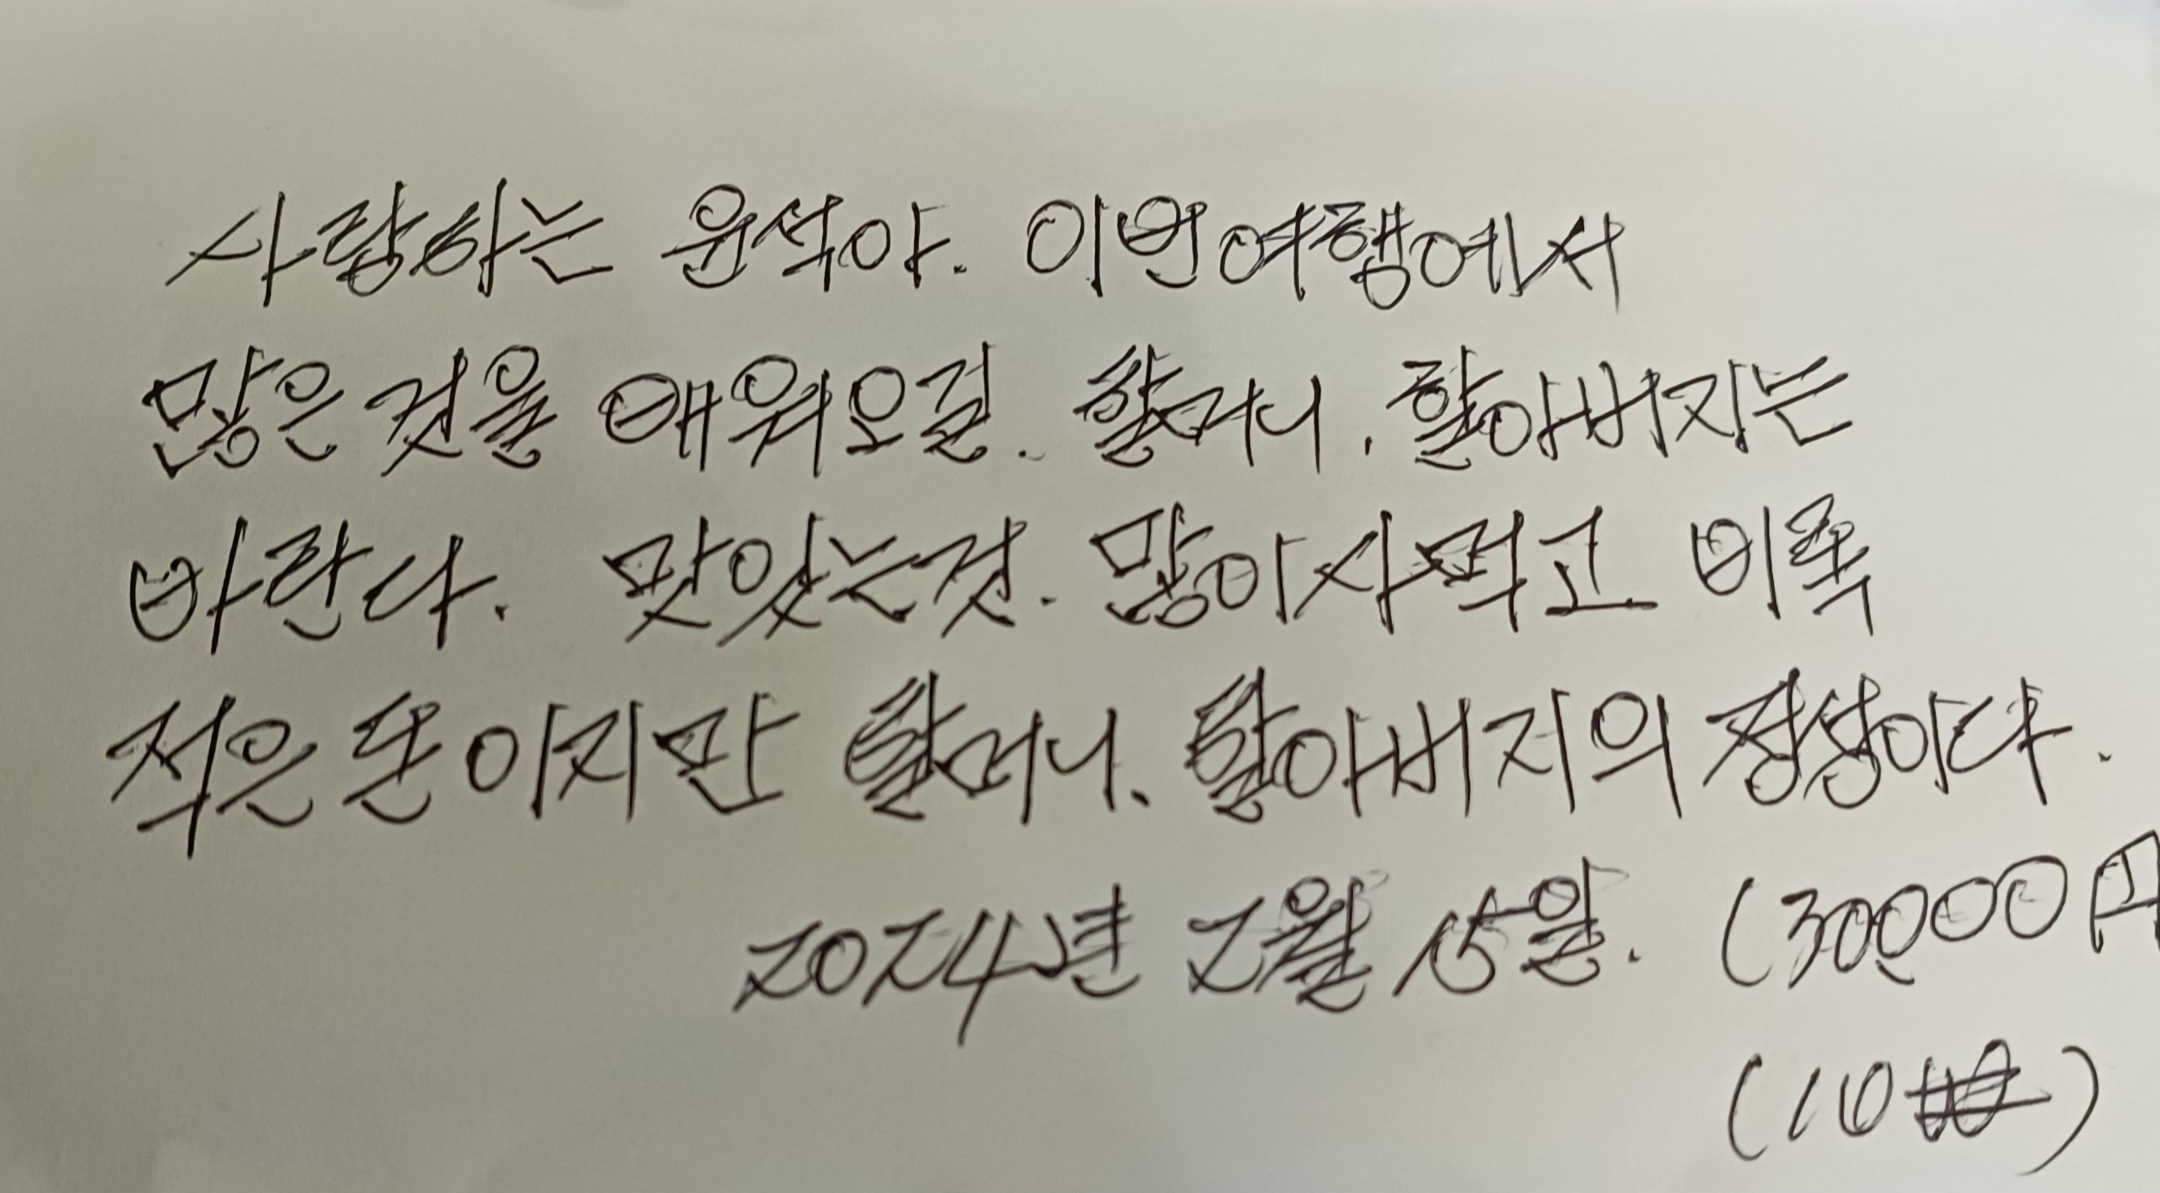 사랑하는 윤석아. 이번여행에서
많은것을 배워오길. 할머니, 할아버지는
바란다. 맛있는것. 많이사먹고 비록
적은돈이지만 할머니. 할아버지의 정성이다.
2024년 2월 15일. (30000円
(10₩)